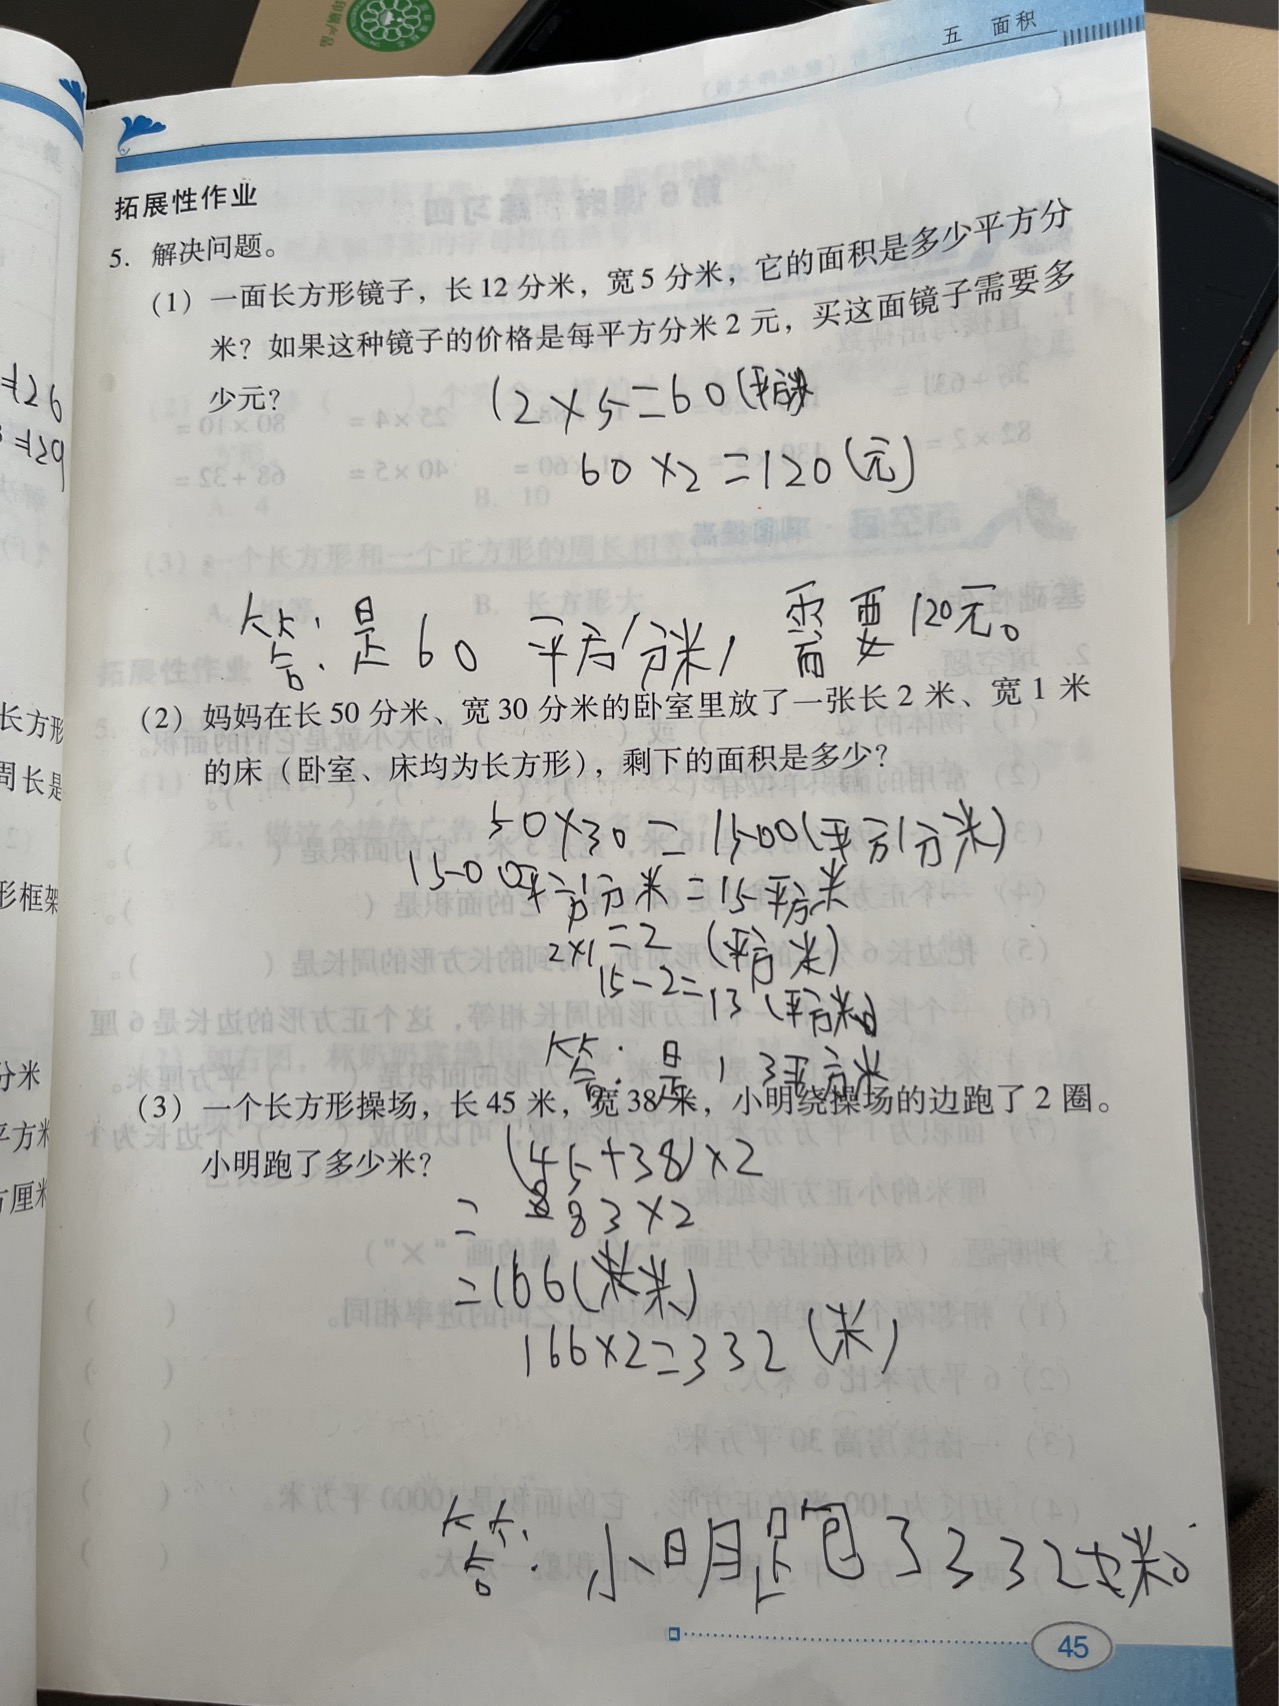 五 面积
拓展性作业
5. 解决问题。
（1）一面长方形镜子，长12分米，宽5分米，它的面积是多少平方分
米？如果这种镜子的价格是每平方分米2元，买这面镜子需要多
少元？
12×5=60(平方分米
60×2=120(元)
答：是60平方分米，需要120元。
（2）妈妈在长50分米、宽30分米的卧室里放了一张长2米、宽1米
的床（卧室、床均为长方形），剩下的面积是多少？
50×30=1500(平方分米)
1500平方分米=15平方米
2×1=2 (平方米)
15-2=13(平方米)
答：是13平方米
（3）一个长方形操场，长45米，宽38米，小明绕操场的边跑了2圈。
小明跑了多少米？
(45+38)×2
=83×2
=166(米)
166×2=332 (米)
答：小明跑了332米。
45
=126
=129
长方形
周长是
形框架
分米
平方米
方厘米